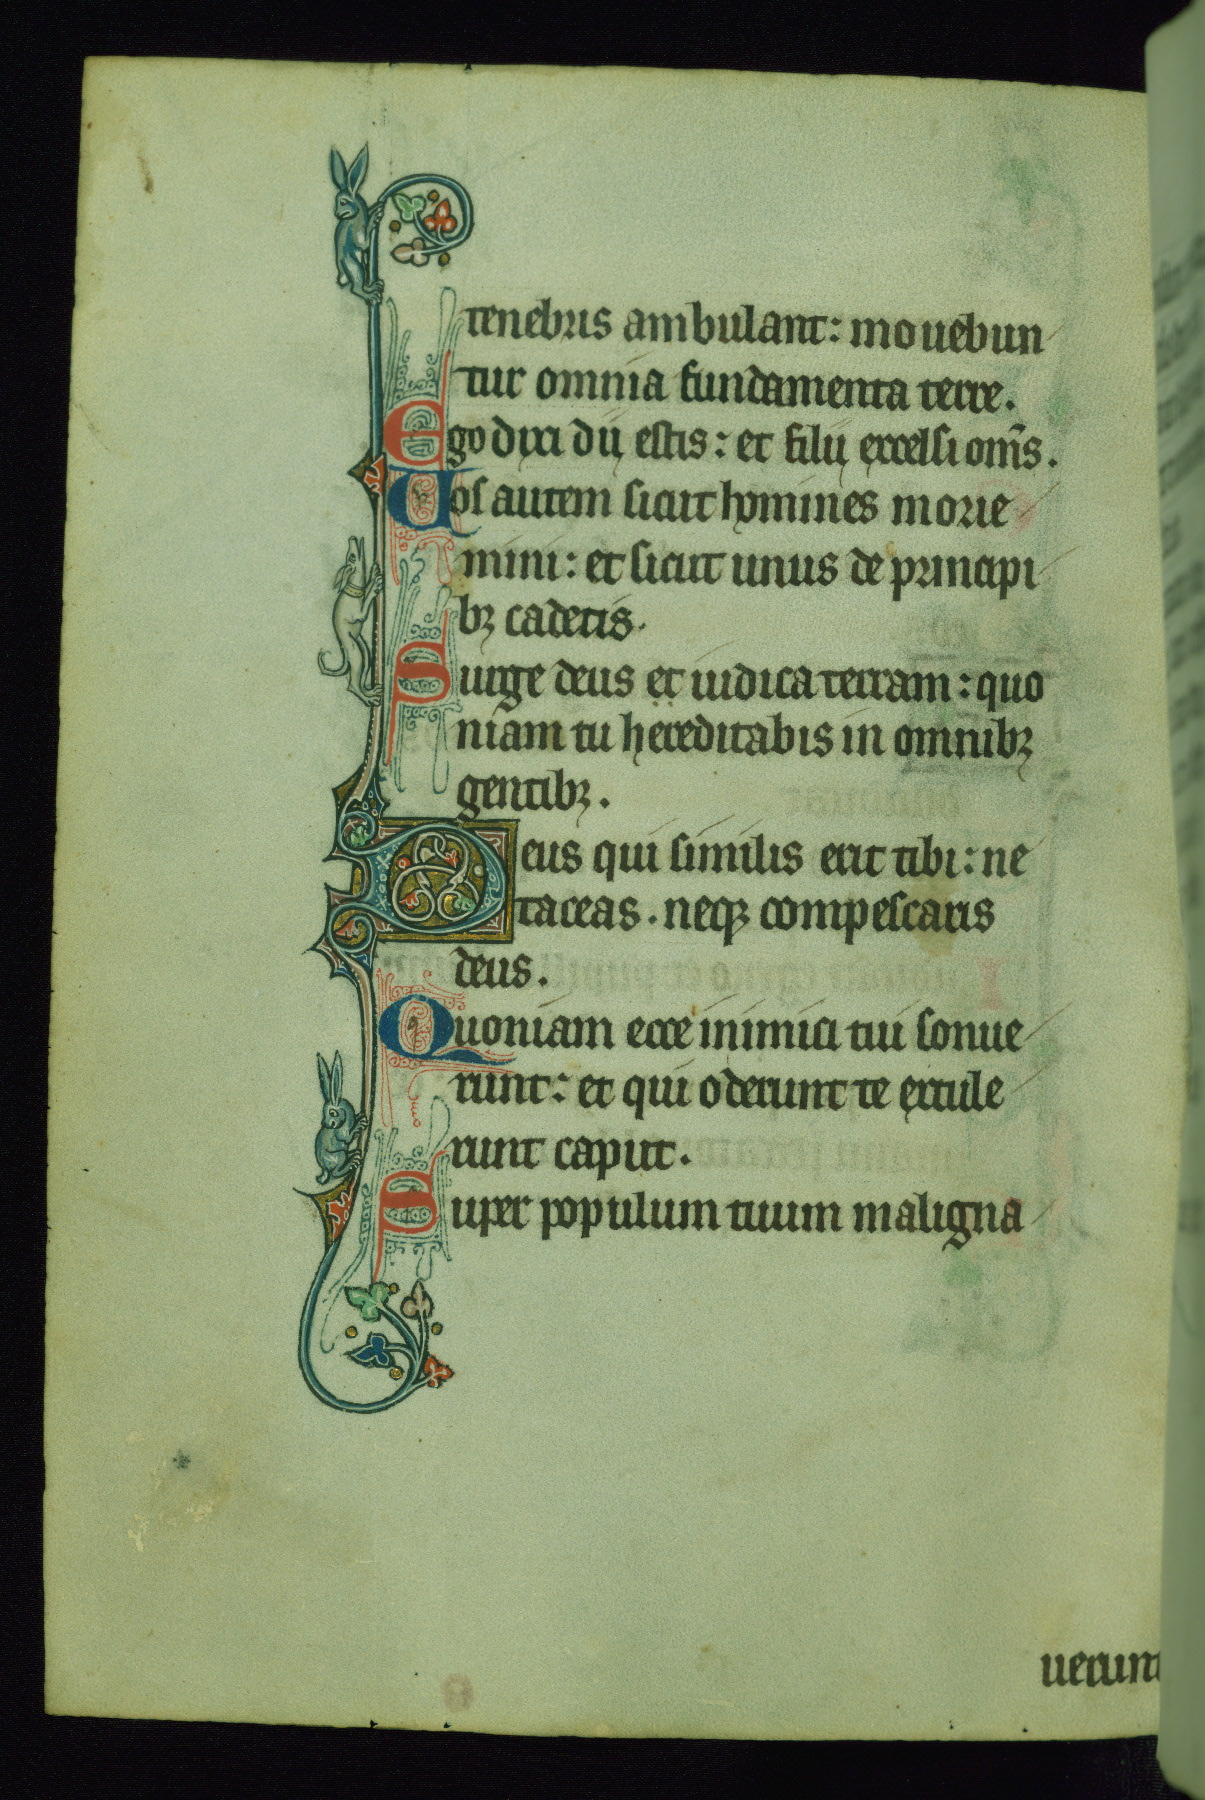 tenebris ambulant: mouebun
tur omnia fundamenta terre.
Ego dixi dii estis: et filii excelsi om̄s.
Uos autem sicut homines morie
mini: et sicut unus de principi
bꝫ cadetis.
Surge deus et iudica terram: quo
niam tu hereditabis in omnibꝫ
gentibꝫ.
Deus qui similis erit tibi: ne
taceas. neqꝫ compescaris
deus.
Quoniam ecce inimici tui sonue
runt: et qui oderunt te extule
runt caput.
Super populum tuum maligna
uerunt